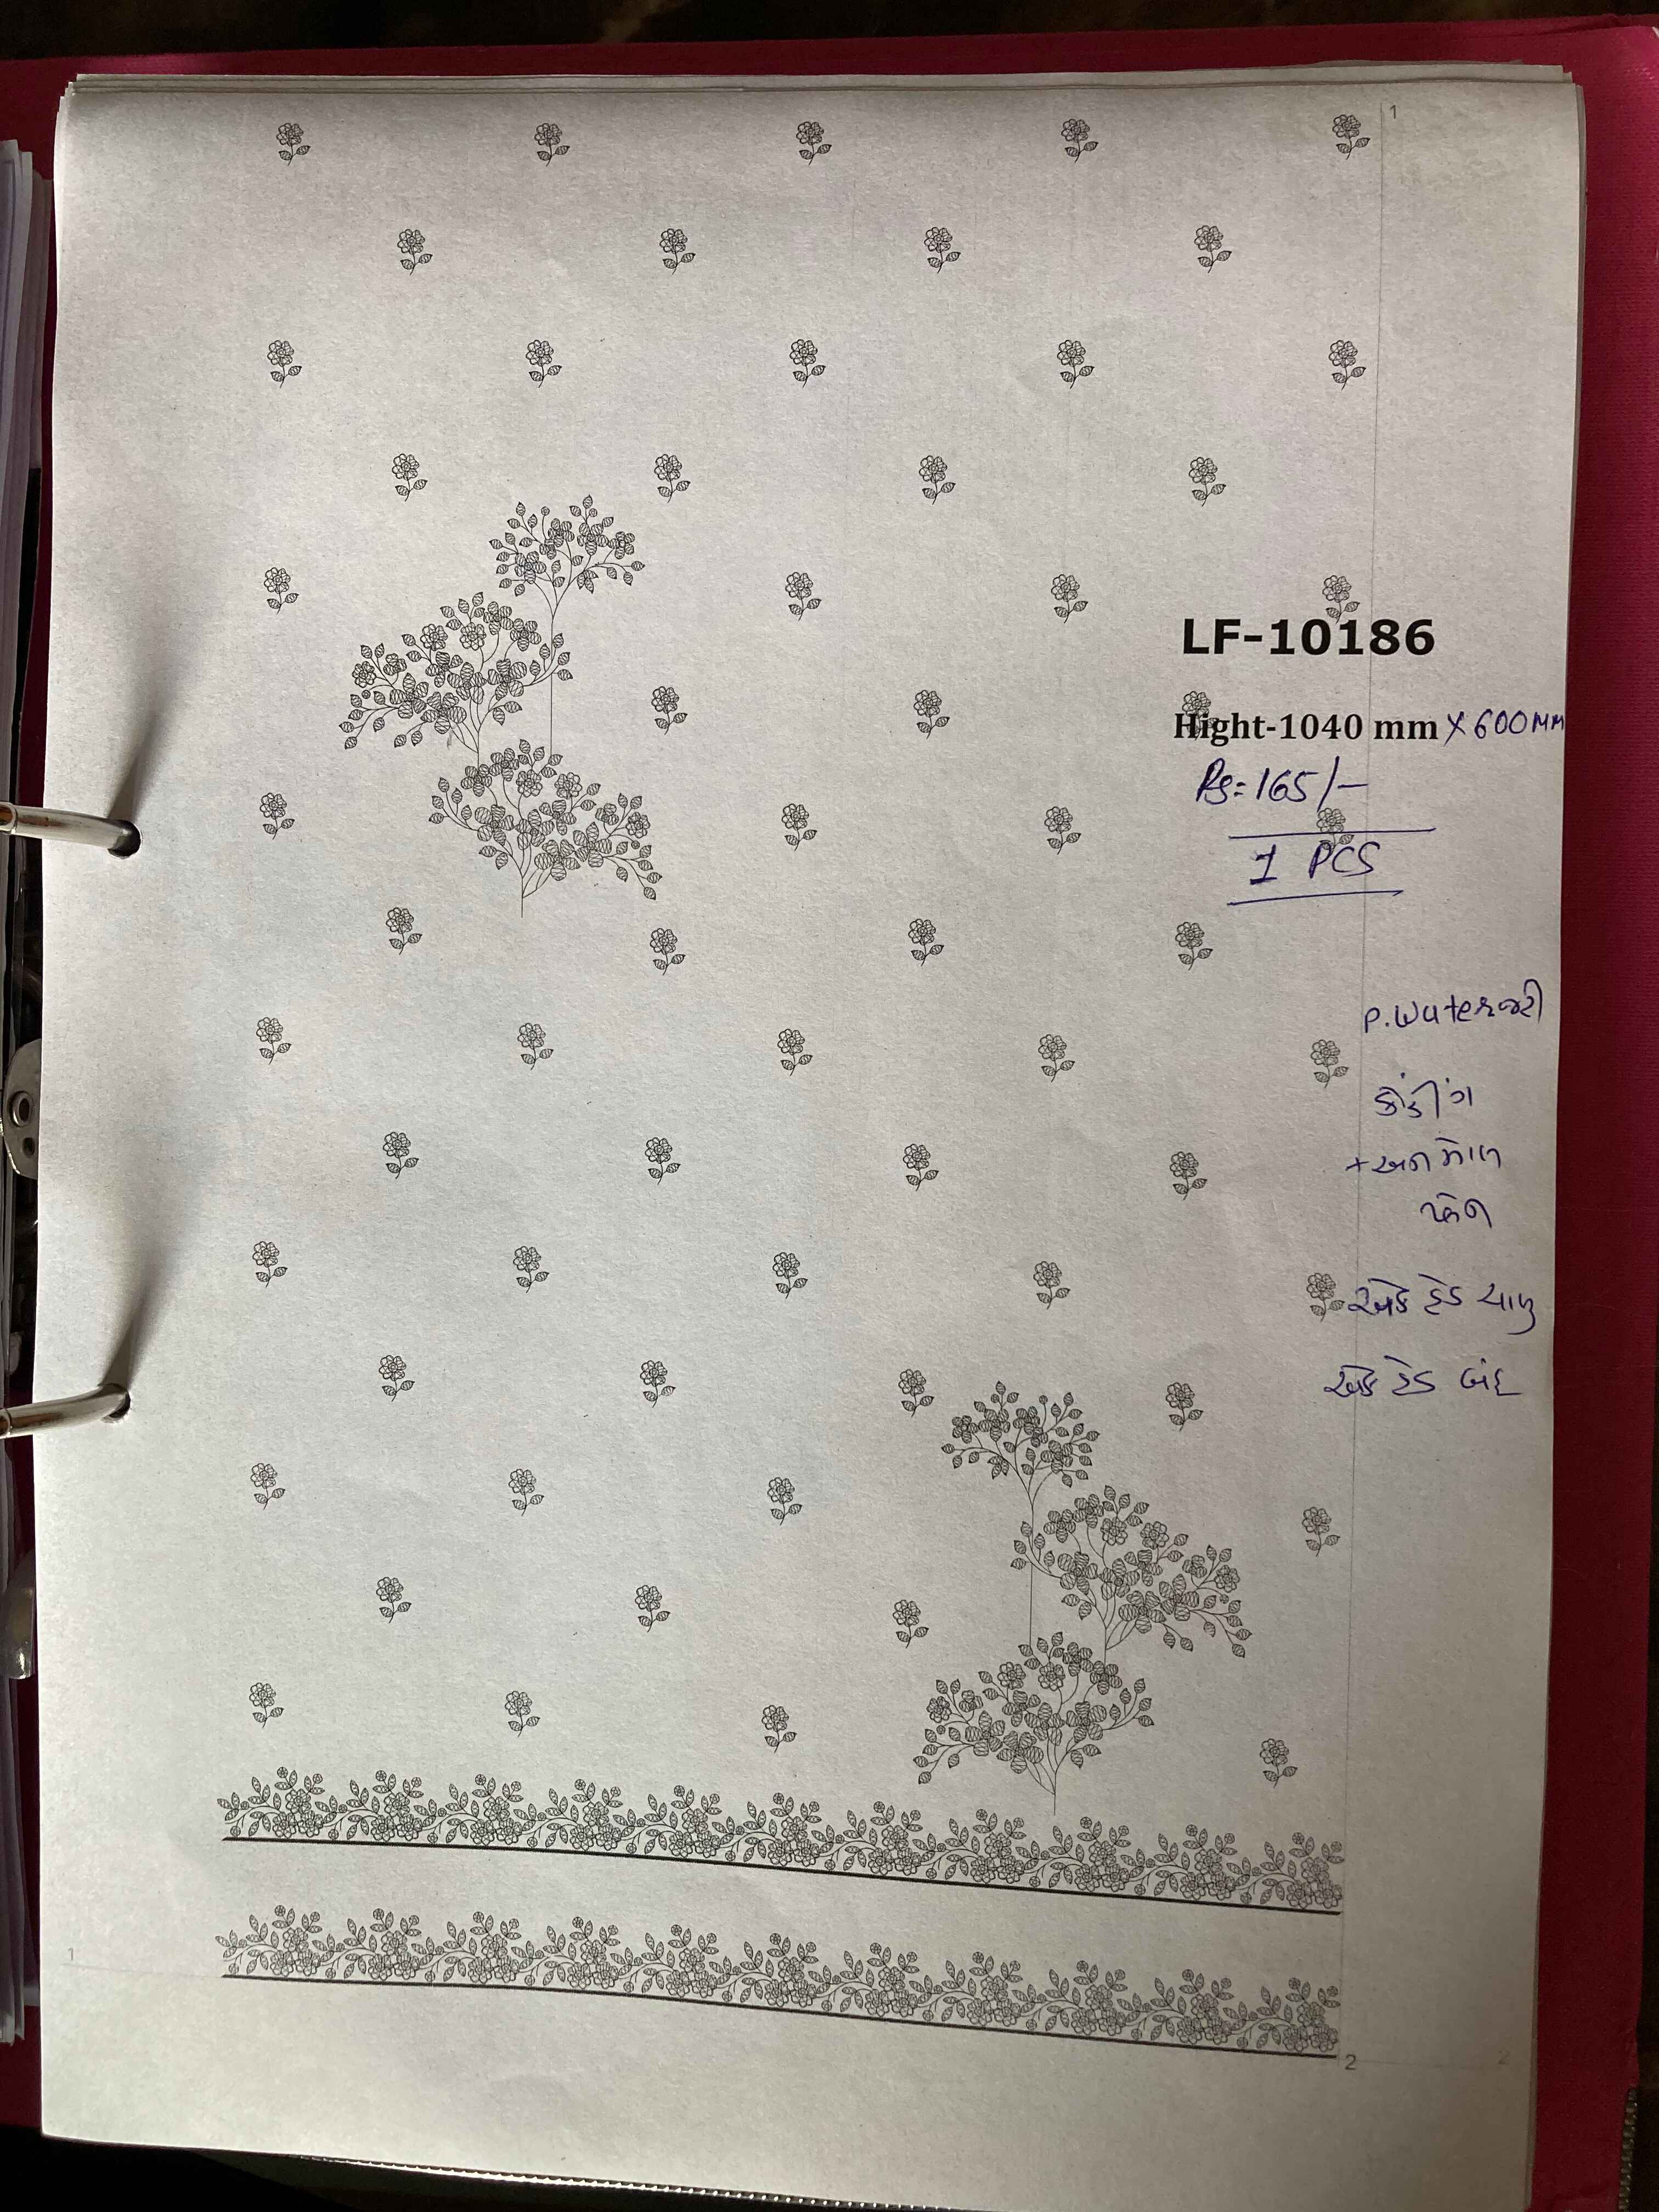 1
LF-10186
Hight-1040 mm X 600MM
Rs=165/-
1 PCS
P.Waterજરી
કોડીંગ
+
એક હેડ ચાલુ
એક હેડ બંદ
1
2
2